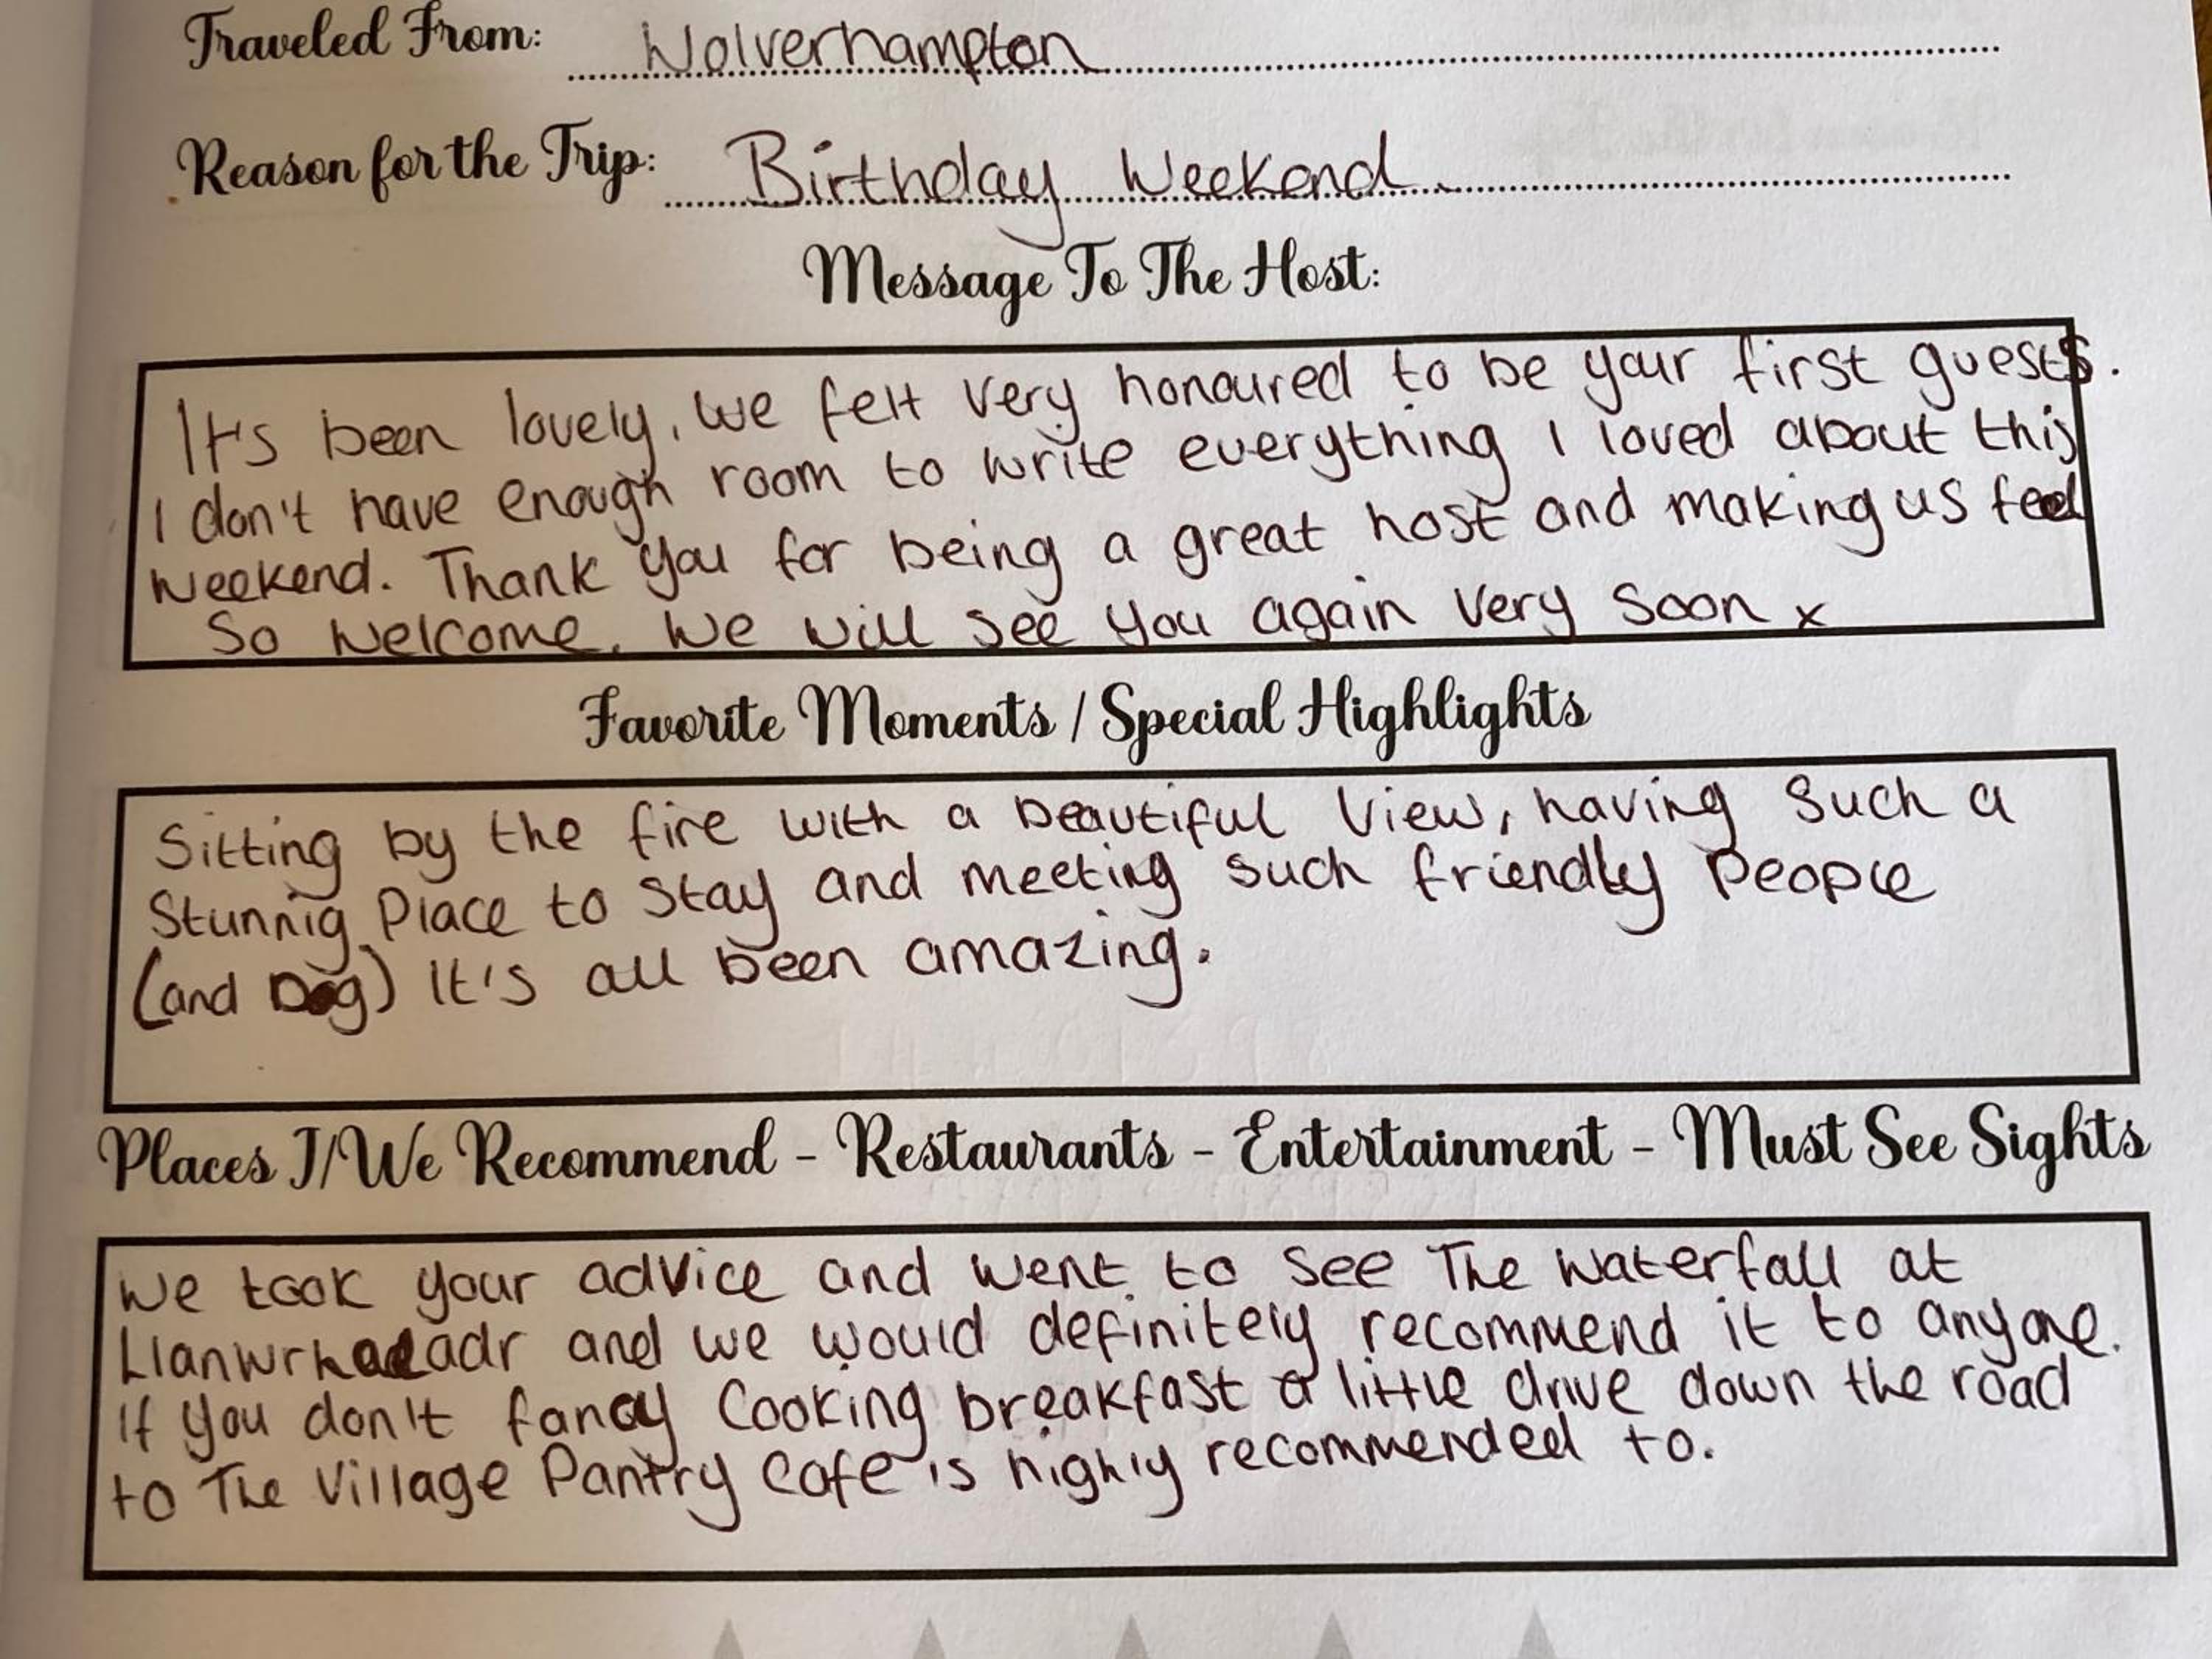 Traveled From: Wolverhampton
Reason for the Trip: Birthday Weekend.
Message To The Host:
It's been lovely, we felt very honoured to be your first guests.
I don't have enough room to write everything I loved about this
weekend. Thank you for being a great host and making us feel
So welcome. We will see you again very soon x
Favorite Moments / Special Highlights
Sitting by the fire with a beautiful view, having such a
Stunnig place to stay and meeting such friendly people
(and Dog) It's all been amazing.
Places I/We Recommend - Restaurants - Entertainment - Must See Sights
We took your advice and went to see The waterfall at
Llanwrhaeadr and we would definitely recommend it to anyone.
If you don't fancy cooking breakfast a little drive down the road
to The Village Pantry cafe is highly recommended to.